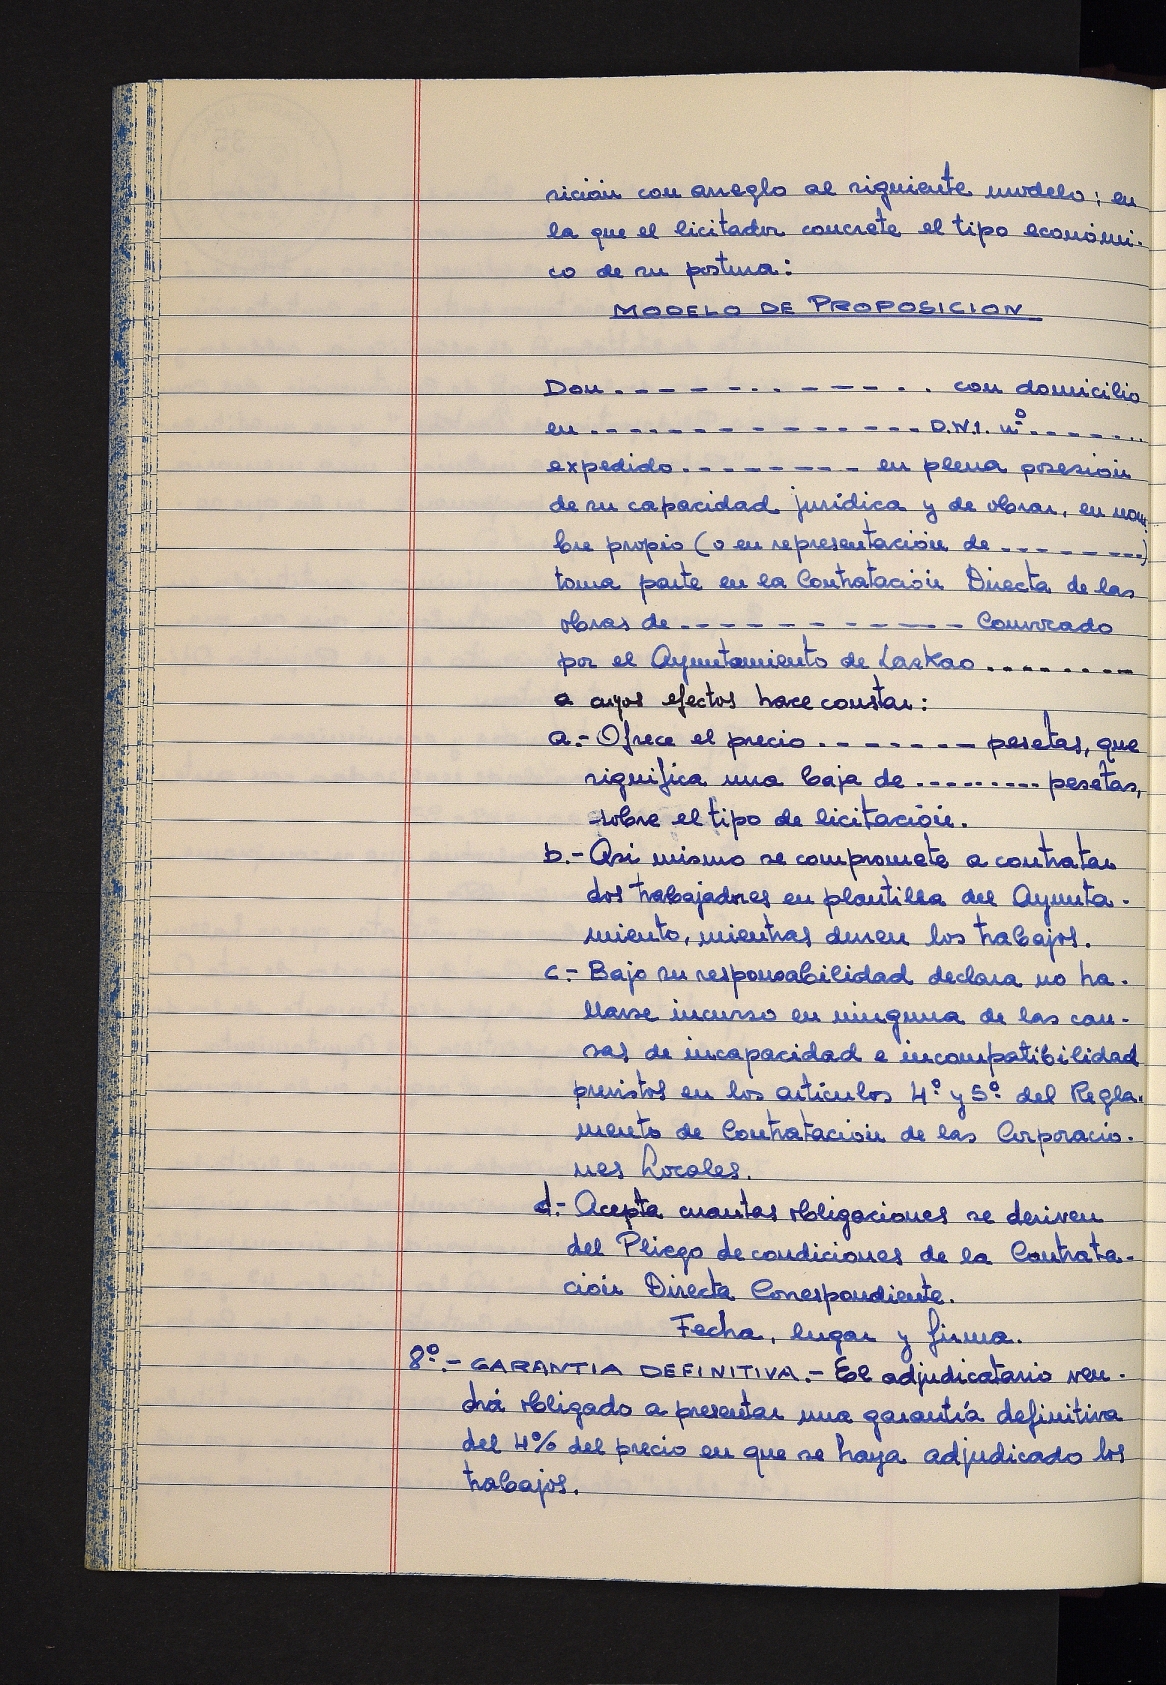 sición con arreglo al siguiente modelo; en
la que el licitador concrete el tipo económi-
co de su postura:
MODELO DE PROPOSICION
Don . _ _ _ _ _ . . _ _ _ _ . . con domicilio
en . _ _ _ _ _ _ _ _ _ _ _ _ _ D.N.I. nº . _ _ _ . .
expedido . _ _ _ _ _ _ _ en plena posesión
de su capacidad jurídica y de obrar, en nom-
bre propio (o en representación de _ _ _ _ _ _ _ )
toma parte en la Contratación Directa de las
obras de _ _ _ _ _ _ _ _ _ _ _ Convocado
por el Ayuntamiento de Lazkao . _ _ _ _ _ _ _
a cuyos efectos hace constar:
a.- Ofrece el precio . _ _ _ _ _ _ pesetas, que
significa una baja de _ _ _ _ _ _ _ _ pesetas,
sobre el tipo de licitación.
b.- Asi mismo se compromete a contratar
dos trabajadores en plantilla del Ayunta-
miento, mientras duren los trabajos.
c.- Bajo su responsabilidad declara no ha-
llarse incurso en ninguna de las cau-
sas de incapacidad e incompatibilidad
previstos en los artículos 4º y 5º del Regla-
mento de Contratación de las Corporacio-
nes Locales.
d.- Acepta cuantas obligaciones se deriven
del Pliego de condiciones de la Contrata-
ción Directa Correspondiente.
Fecha, lugar y firma.
8º.- GARANTIA DEFINITIVA.- El adjudicatario ven-
drá obligado a presentar una garantía definitiva
del 4% del precio en que se haya adjudicado los
trabajos.